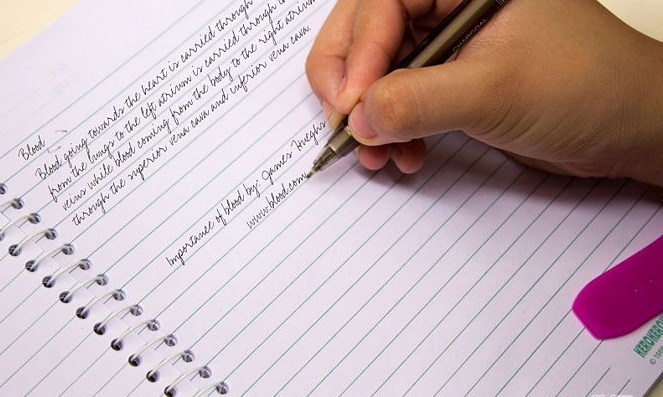 Blood
Blood going towards the heart is carried through
from the lungs to the left atrium is carried through
veins while blood coming from the body to the right atrium
through the superior vena cava and inferior vena cava.
Importance of blood by: James Hueghs
www.blood.com
CHARCOAL
KEROKERO